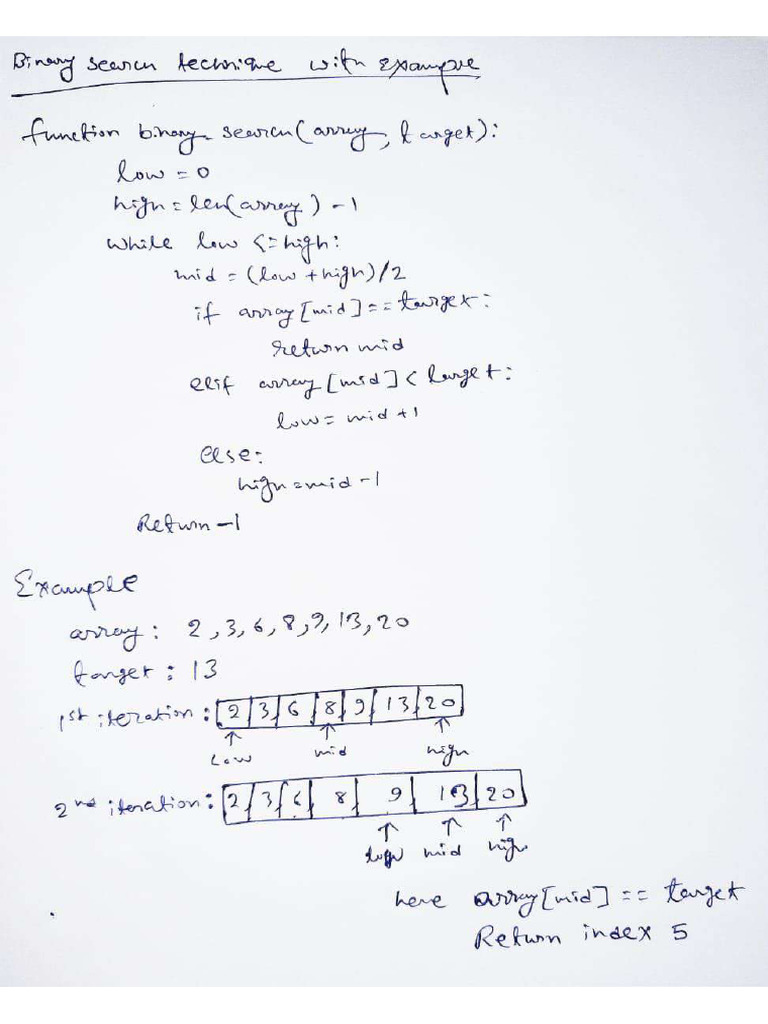 Binary search technique with Example
function binary_search(array, target):
low = 0
high = len(array) - 1
while low <= high:
mid = (low + high)/2
if array[mid] == target:
return mid
elif array[mid] < target:
low = mid + 1
else:
high = mid - 1
Return -1
Example
array: 2, 3, 6, 8, 9, 13, 20
target: 13
1st iteration: 2 3 6 8 9 13 20
low mid high
2nd iteration: 2 3 6 8 9 13 20
low mid high
here array[mid] == target
Return index 5